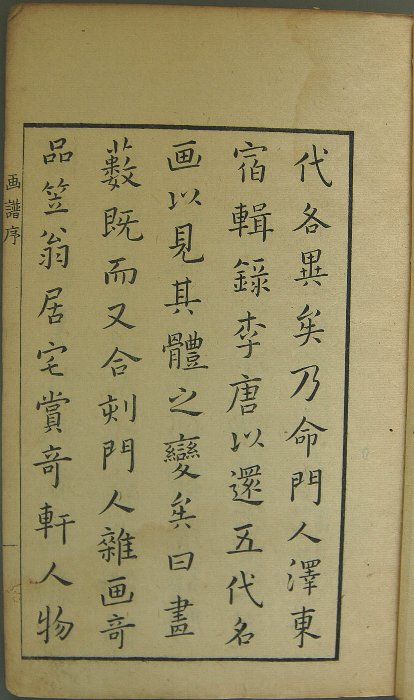 代各異矣乃命門人澤東
宿輯錄李唐以還五代名
画以見其體之變矣曰畫
藪既而又合刻門人雜画竒
品笠翁居宅賞竒軒人物
画譜序
一